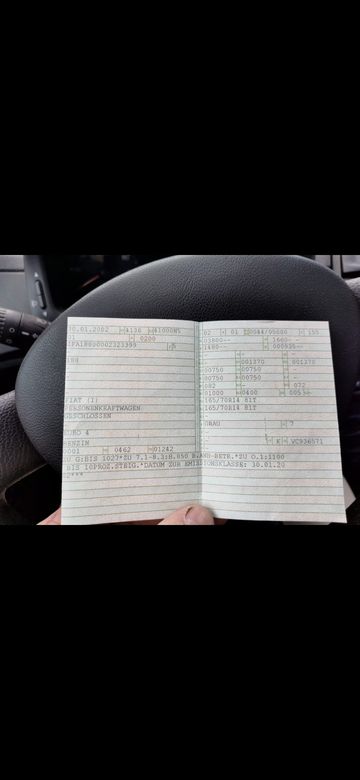 30.01.2002 4136 41000N5
01 0200
188
FIAT (I)
PERSONENKRAFTWAGEN
GESCHLOSSEN
EURO 4
BENZIN
0001 0462 01242
ZU G:BIS 1023*ZU 7.1-8.3:H.850 B.ANH-BETR.*ZU O.1:1100
BIS 10PROZ.STEIG.*DATUM ZUR EMISSIONSKLASSE: 30.01.20
02 01 0044/05000 155
03800-- 1660--
1480-- 000935--
- -
001370 001370
00750 00750 -
00750 00750 -
082 072
01000 0400 005
165/70R14 81T
165/70R14 81T
-
GRAU 7
-
- K VC936571